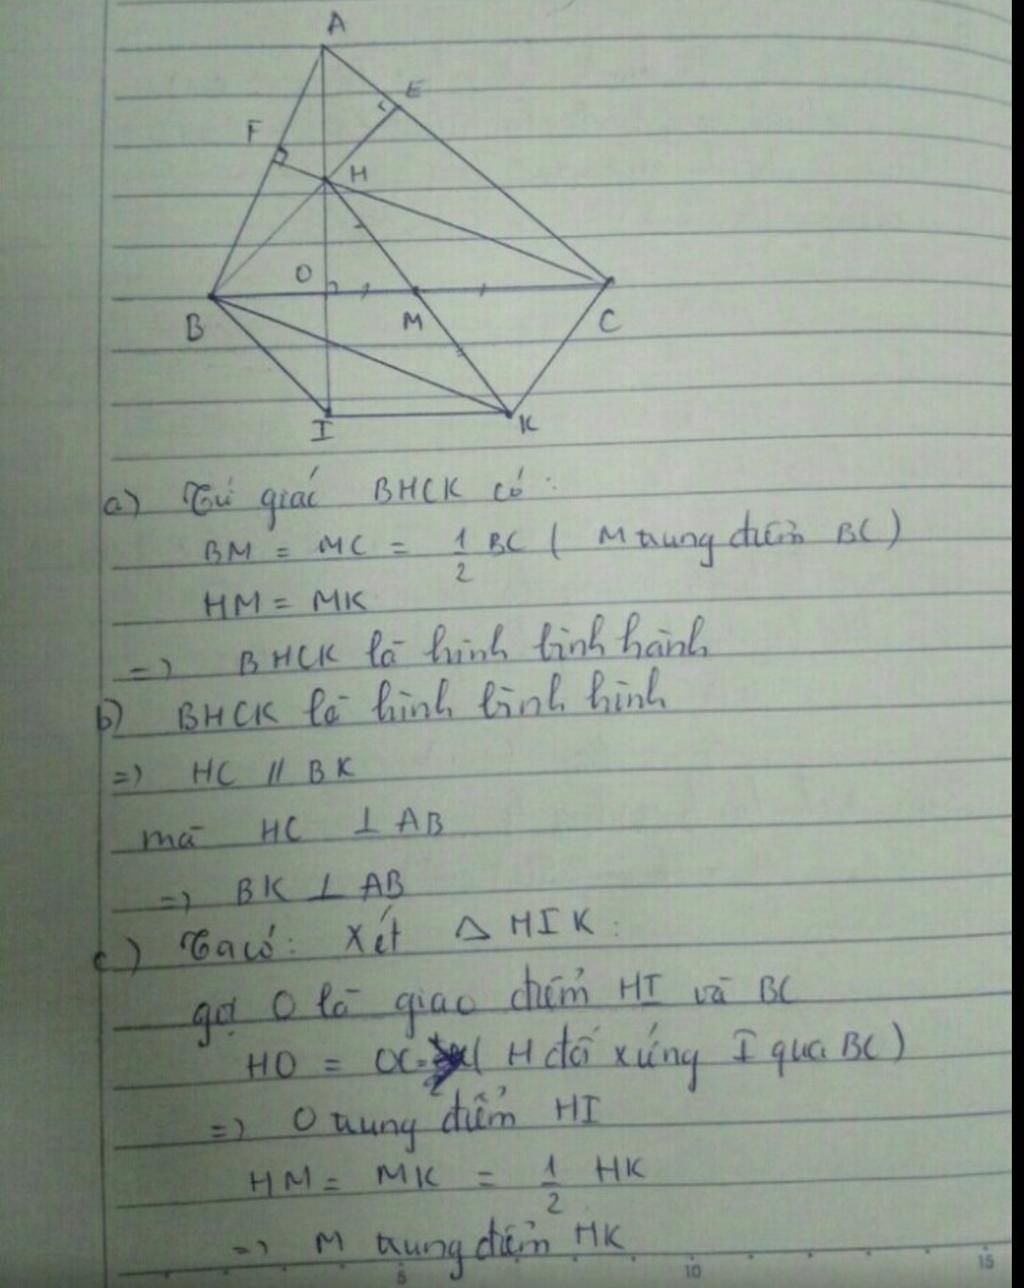 A
E
F
H
O
B
M
C
I
K
a) Tứ giác BHCK có:
BM = MC = 1/2 BC ( M trung điểm BC)
HM = MK
=> BHCK là hình bình hành
b) BHCK là hình bình hình
=> HC // BK
mà HC ⊥ AB
=> BK ⊥ AB
c) Ta có: Xét Δ HIK:
gọi O là giao điểm HI và BC
HO = ( H đối xứng I qua BC)
=> O trung điểm HI
HM = MK = 1/2 HK
=> M trung điểm HK
5 10 15